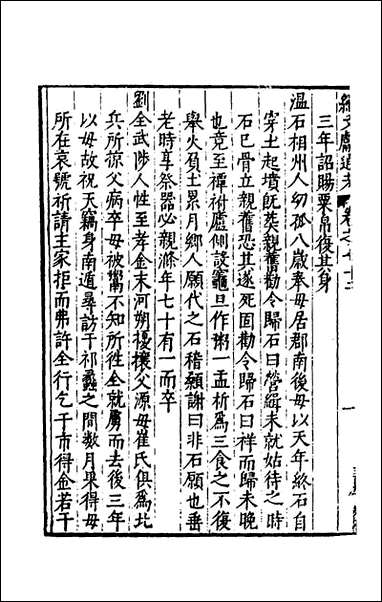 三年詔賜粟帛復其身
溫石相州人幼孤八歲奉母居郡南後母以天年終石自
穿土起墳旣葬親舊勸令歸石曰營緝未就姑待之時
石已骨立親舊恐其遂死固勸令歸石曰祥而歸未晚
也竟至禫祔廬側設竈旦作粥一盂析爲三食之不復
舉火負土累月鄉人願代之石稽顙謝曰非石願也垂
老時享祭器必親滌年七十有一而卒
劉全武陟人性至孝金末河朔擾攘父源母崔氏俱爲北
兵所掠父病卒母被鬻不知所徃全就虜而去後三年
以母故祝天竊身南遁尋訪于祁蠡之間數月果得母
所在哀號祈請主家拒而弗許全行乞于市得金若干